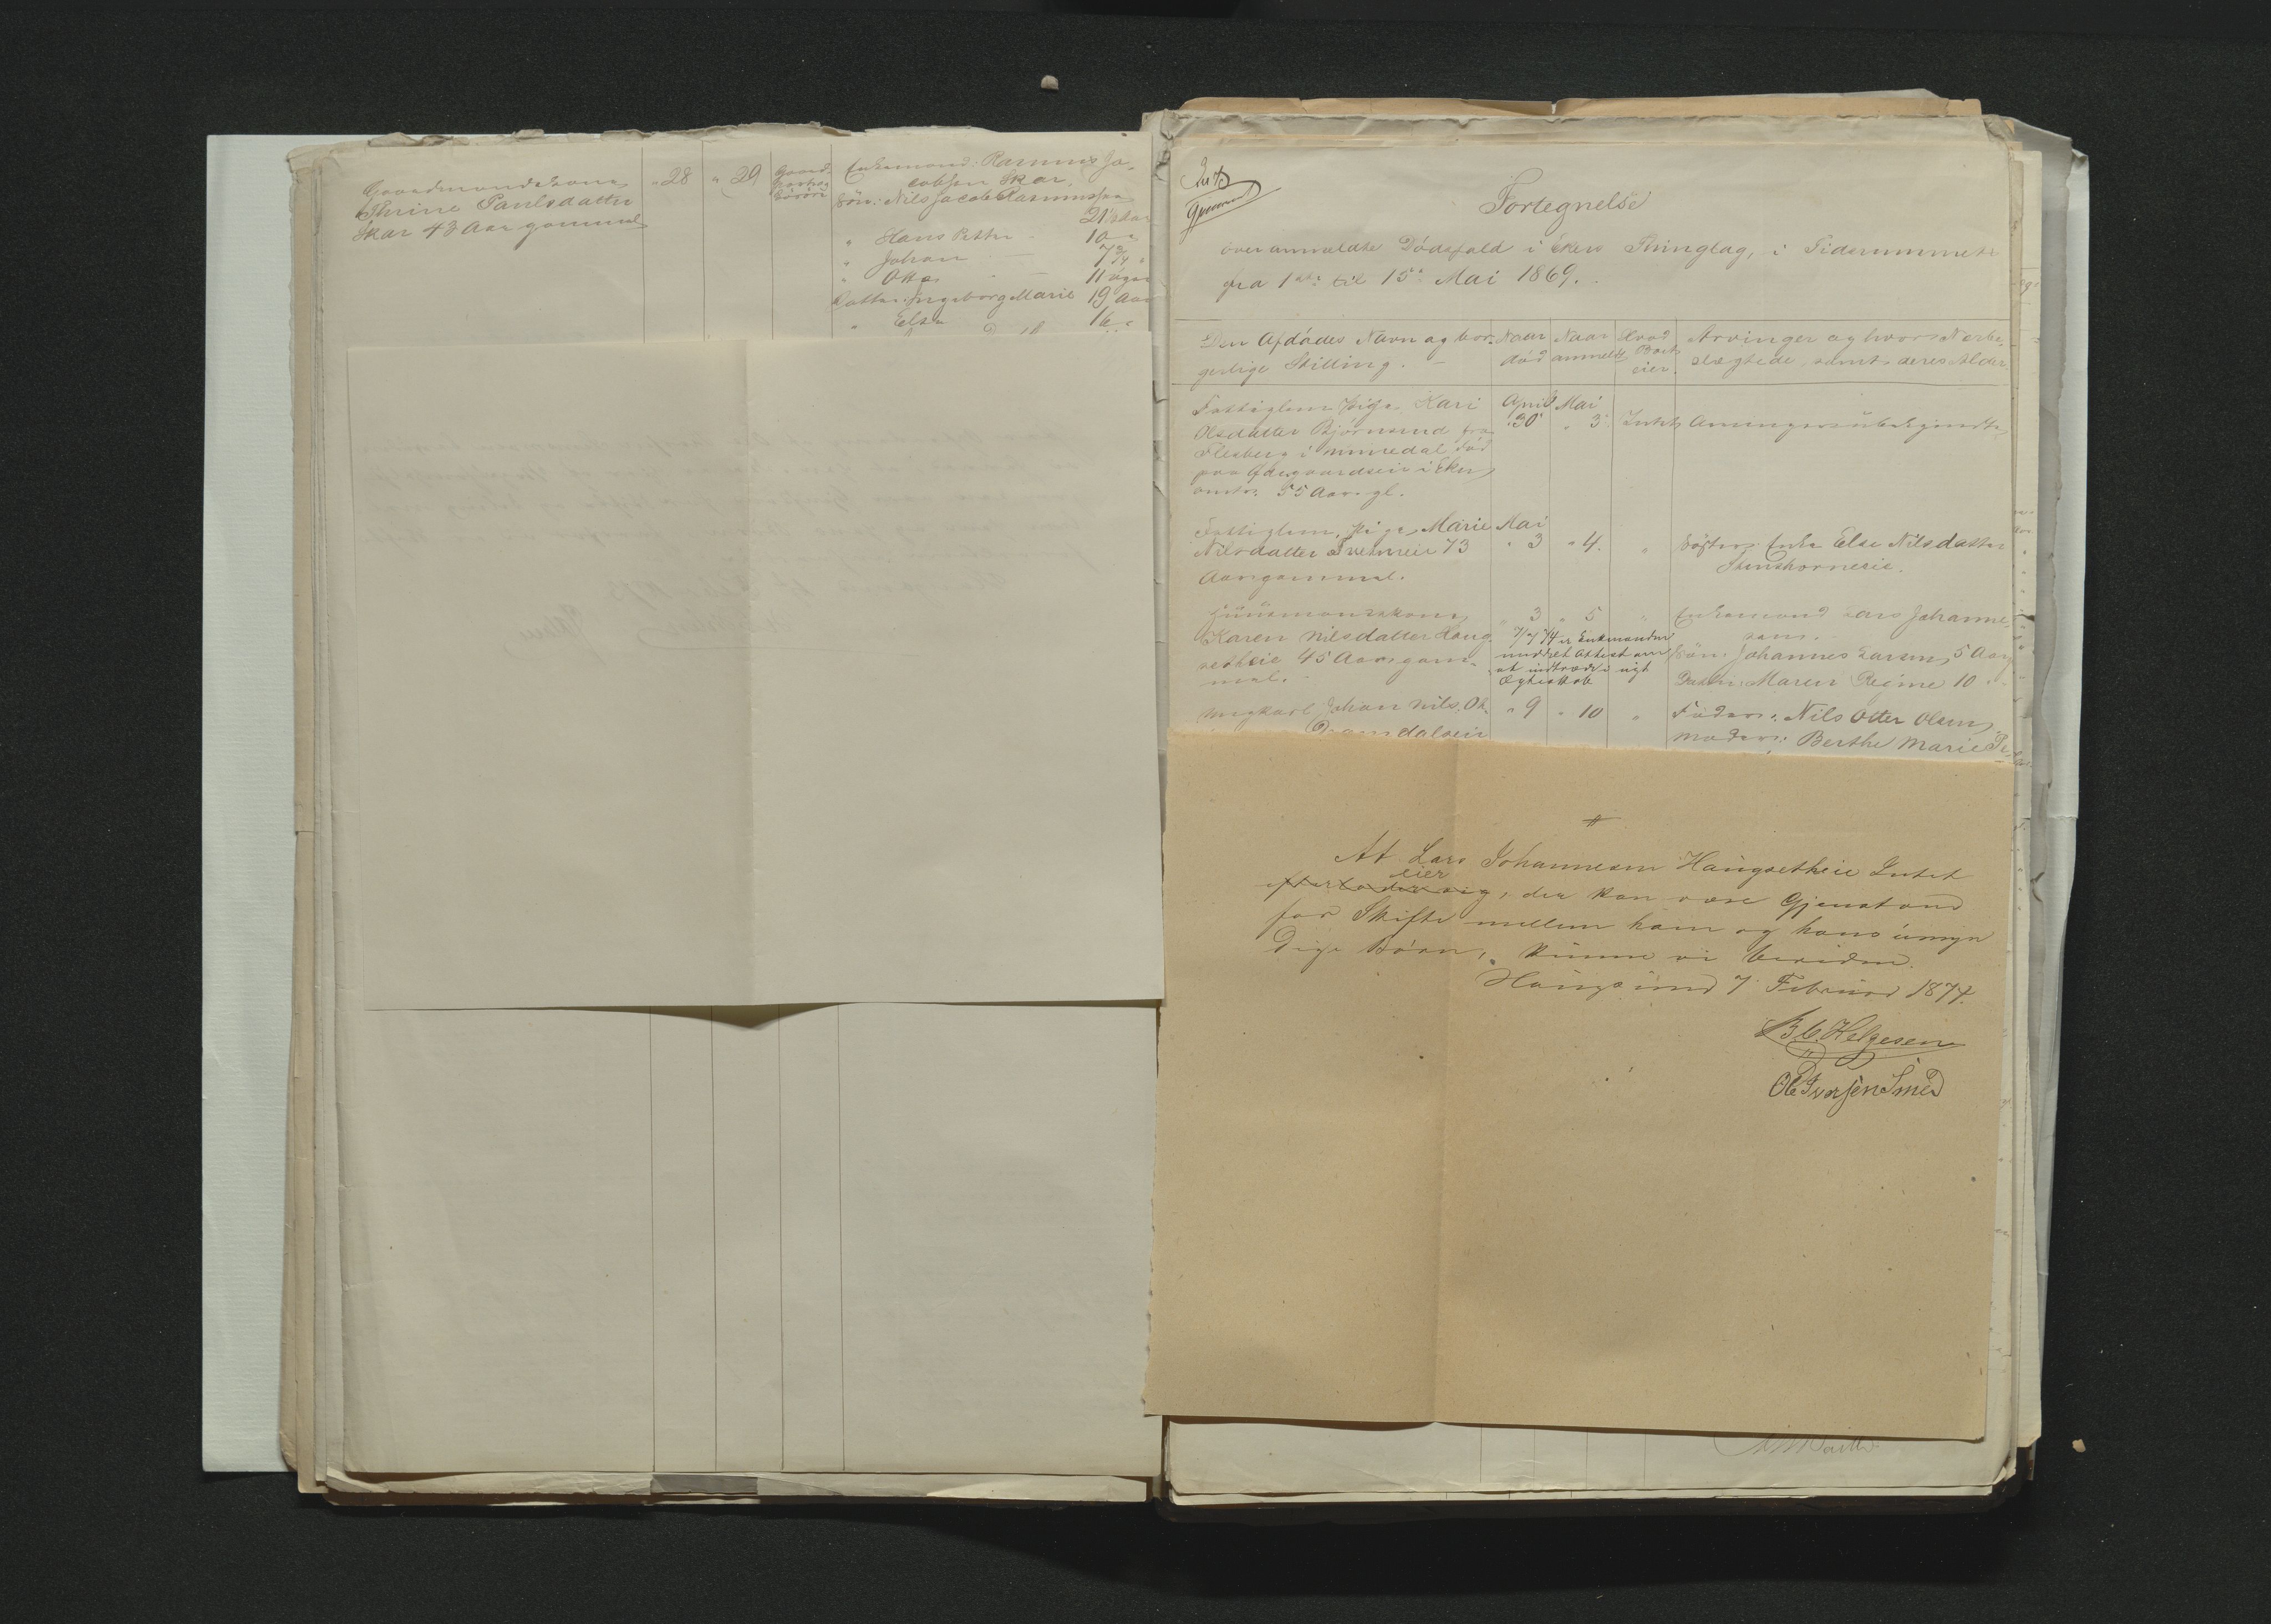 Gaardmandskone
Thrine Paulsdatter
Skar 43 Aar gammel
" 28 " 29 Gaard
Enkemand: Rasmus Ja-
cobsen Skar,
Søn: Nils Jacob Rasmussen
21 Aar
" Hans Petter 10 "
" Johan 7 3/4 "
" Otto 11 Uger
Datter: Ingeborg Marie 19 Aar
" Else 16 "
Fortegnelse
over anmeldte Dødsfald i Ekers Thinglag, i Tidsrummet
fra 1ste til 15de Mai 1869.
Den Afdødes Navn og bor-
gerlige Stilling. -
Naar
død
Naar
anmeldt
Hvad
Boet
eier.
Arvinger og hvor Nærbe-
slægtede, samt deres Alder.
Fattiglem Pige Kari
Olsdatter Bjørnerud fra
Flesberg i Nummedal død
paa Ødegaardseie i Eker,
omtr. 55 Aar gl.
April
30
Mai
" 3
Intet
Arvinger ubekjendte
Fattiglem, Pige, Marie
Nilsdatter 73
Aar gammel.
Mai
" 3 " 4. "
Søster: Enke Else Nilsdatter
Stenshorneeie.
Huusmandskone
Karen Nilsdatter Haug-
setheie 45 Aar gam-
mel.
" 3 " 5 "
7/2 74 er Enkemanden
meddelt Attest om
at indtræde i nyt
Ægteskab
Enkemand Lars Johanne-
sen.
Søn: Johannes Larsen, 5 Aar
Datter: Maren Regine 10 "
Ungkarl Johan Nils. Ol-
" 9 " 10 "
Fader: Nils Otter Olsen,
Moder: Berthe Marie Pe-
At Lars Johannesen Haugsetheie Intet
eier
efterlader sig, der kan være Gjenstand
for Skifte mellem ham og hans umyn
dige Børn, kunne vi bevidne.
Haugsund 7 Februar 1874.
B. C. Helgesen
Ole Iversen Smed